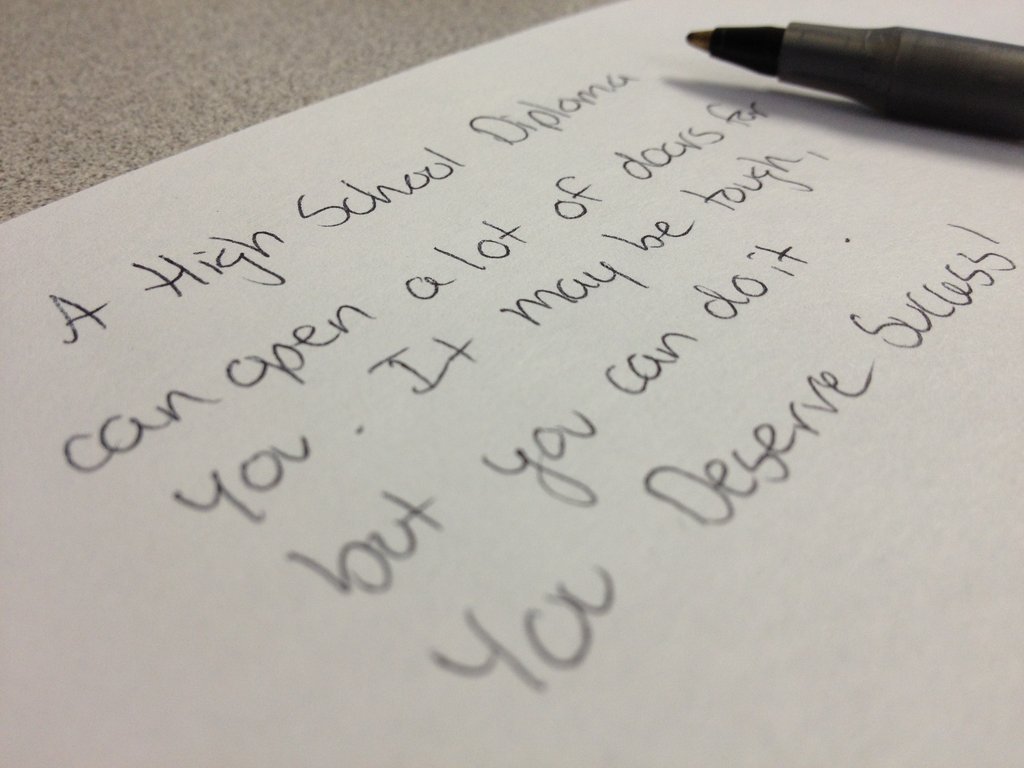 A High School Diploma
can open a lot of doors for
you. It may be tough,
but you can do it.
You Deserve Success!